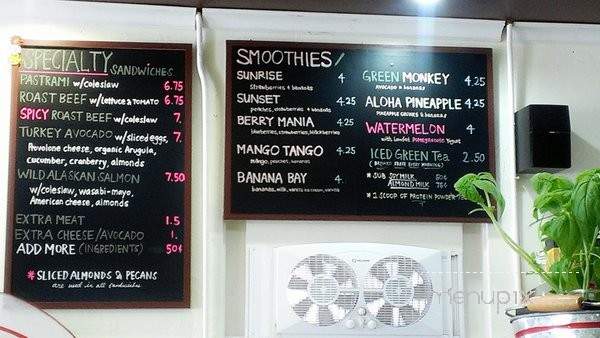 SPECIALTY SANDWICHES
PASTRAMI w/coleslaw 6.75
ROAST BEEF w/lettuce & TOMATO 6.75
SPICY ROAST BEEF w/coleslaw 7.
TURKEY AVOCADO w/sliced eggs, 7.
Provolone cheese, organic Arugula,
Cucumber, cranberry, almonds
WILD ALASKAN SALMON 7.50
w/coleslaw, wasabi-mayo,
American cheese, almonds
EXTRA MEAT 1.5
EXTRA CHEESE/AVOCADO 1.
ADD MORE (INGREDIENTS) 50¢
* SLICED ALMONDS & PECANS
are used in all sandwiches
SMOOTHIES
SUNRISE 4
strawberries & bananas
SUNSET 4.25
peaches, strawberries & bananas
BERRY MANIA 4.25
blueberries, strawberries, blackberries
MANGO TANGO 4.25
mango, peaches, bananas
BANANA BAY 4
bananas, milk, vanilla ice cream, vanilla
GREEN MONKEY 4.25
AVOCADO & bananas
ALOHA PINEAPPLE 4.25
PINEAPPLE CHUNKS & bananas
WATERMELON 4
with lowfat Pomegranate Yogurt
ICED GREEN Tea 2.50
(BREWED FRESH EVERY MORNING)
* SUB SOY MILK 50¢
ALMOND MILK 75¢
* 1 SCOOP OF PROTEIN POWDER
menupix